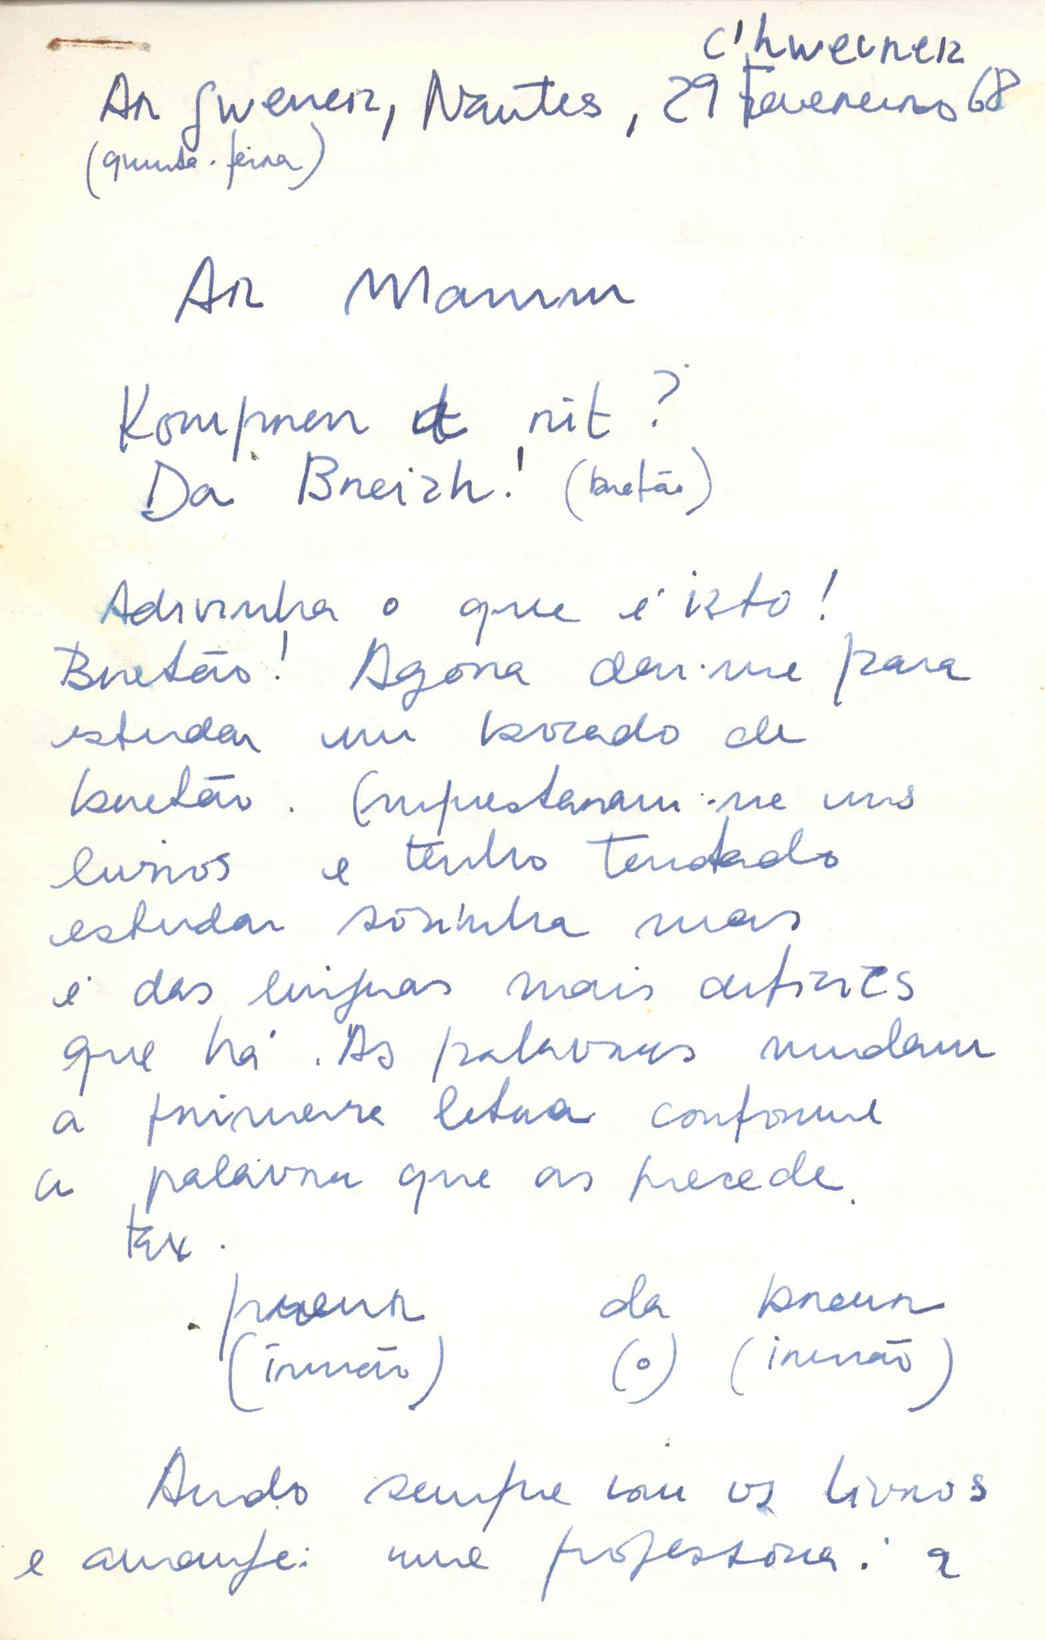 c'hwevrer
Ar gwener, Nantes, 29 Fevereiro 68
(quinta-feira)
Ar Mamm
Kompren rit?
Da Breizh! (bretão)
Adivinha o que é isto!
Bretão! Agora deu-me para
estudar um bocado de
bretão. Emprestaram-me uns
livros e tenho tentado
estudar sòzinha mas
é das línguas mais difíceis
que há. As palavras mudam
a primeira letra conforme
a palavra que as precede.
Ex.
breur da breur
(irmão) (o) (irmão)
Ando sempre com os livros
e arranjei uma professora: a